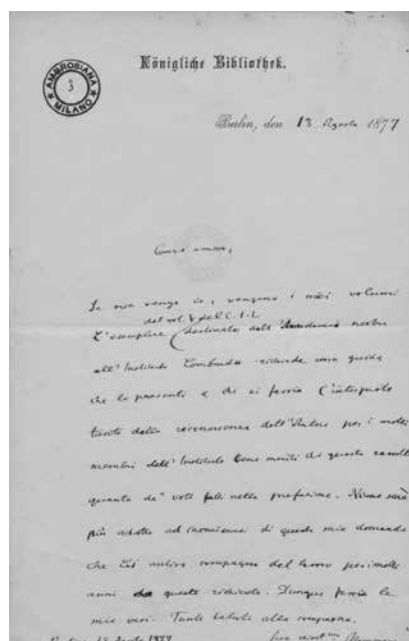 Königliche Bibliothek.
AMBROSIANA
3
MILANO
Berlin, den 13 Agosto 1877
Caro amico,
Se non vengo io, vengono i miei volumi
del vol V del C.I.L
L'esemplare destinato dall'Accademia nostra
all'Instituto Lombardo richiede una guida
che lo presenti e che si faccia l'interprete
tanto della riconoscenza dell'Autore per i molti
membri dell'Instituto bene meriti di questa raccolta
quanto de' voti fatti nella prefazione. Niuno sarà
più adatto ad incaricarsi di questa mia domanda
che Lei antico compagno del lavoro per molti
anni da questo richiesto. Dunque faccia le
mie veci. Tanti saluti alla compagna.
Berlino 13 Agosto 1877
Suo Mommsen